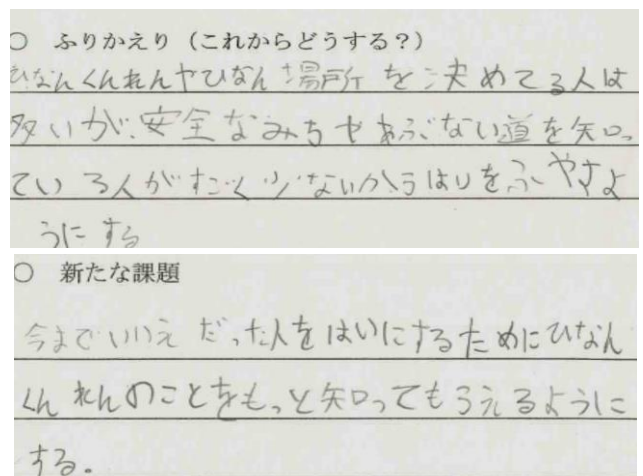 ○ ふりかえり（これからどうする？）
ひなんくんれんやひなん場所を決めてる人は
多いが、安全なみちやあぶない道を知っ
ている人がすごく少ないからはいをふやすよ
うにする
○ 新たな課題
今までいいえだった人をはいにするためにひなん
くんれんのことをもっと知ってもらえるように
する。